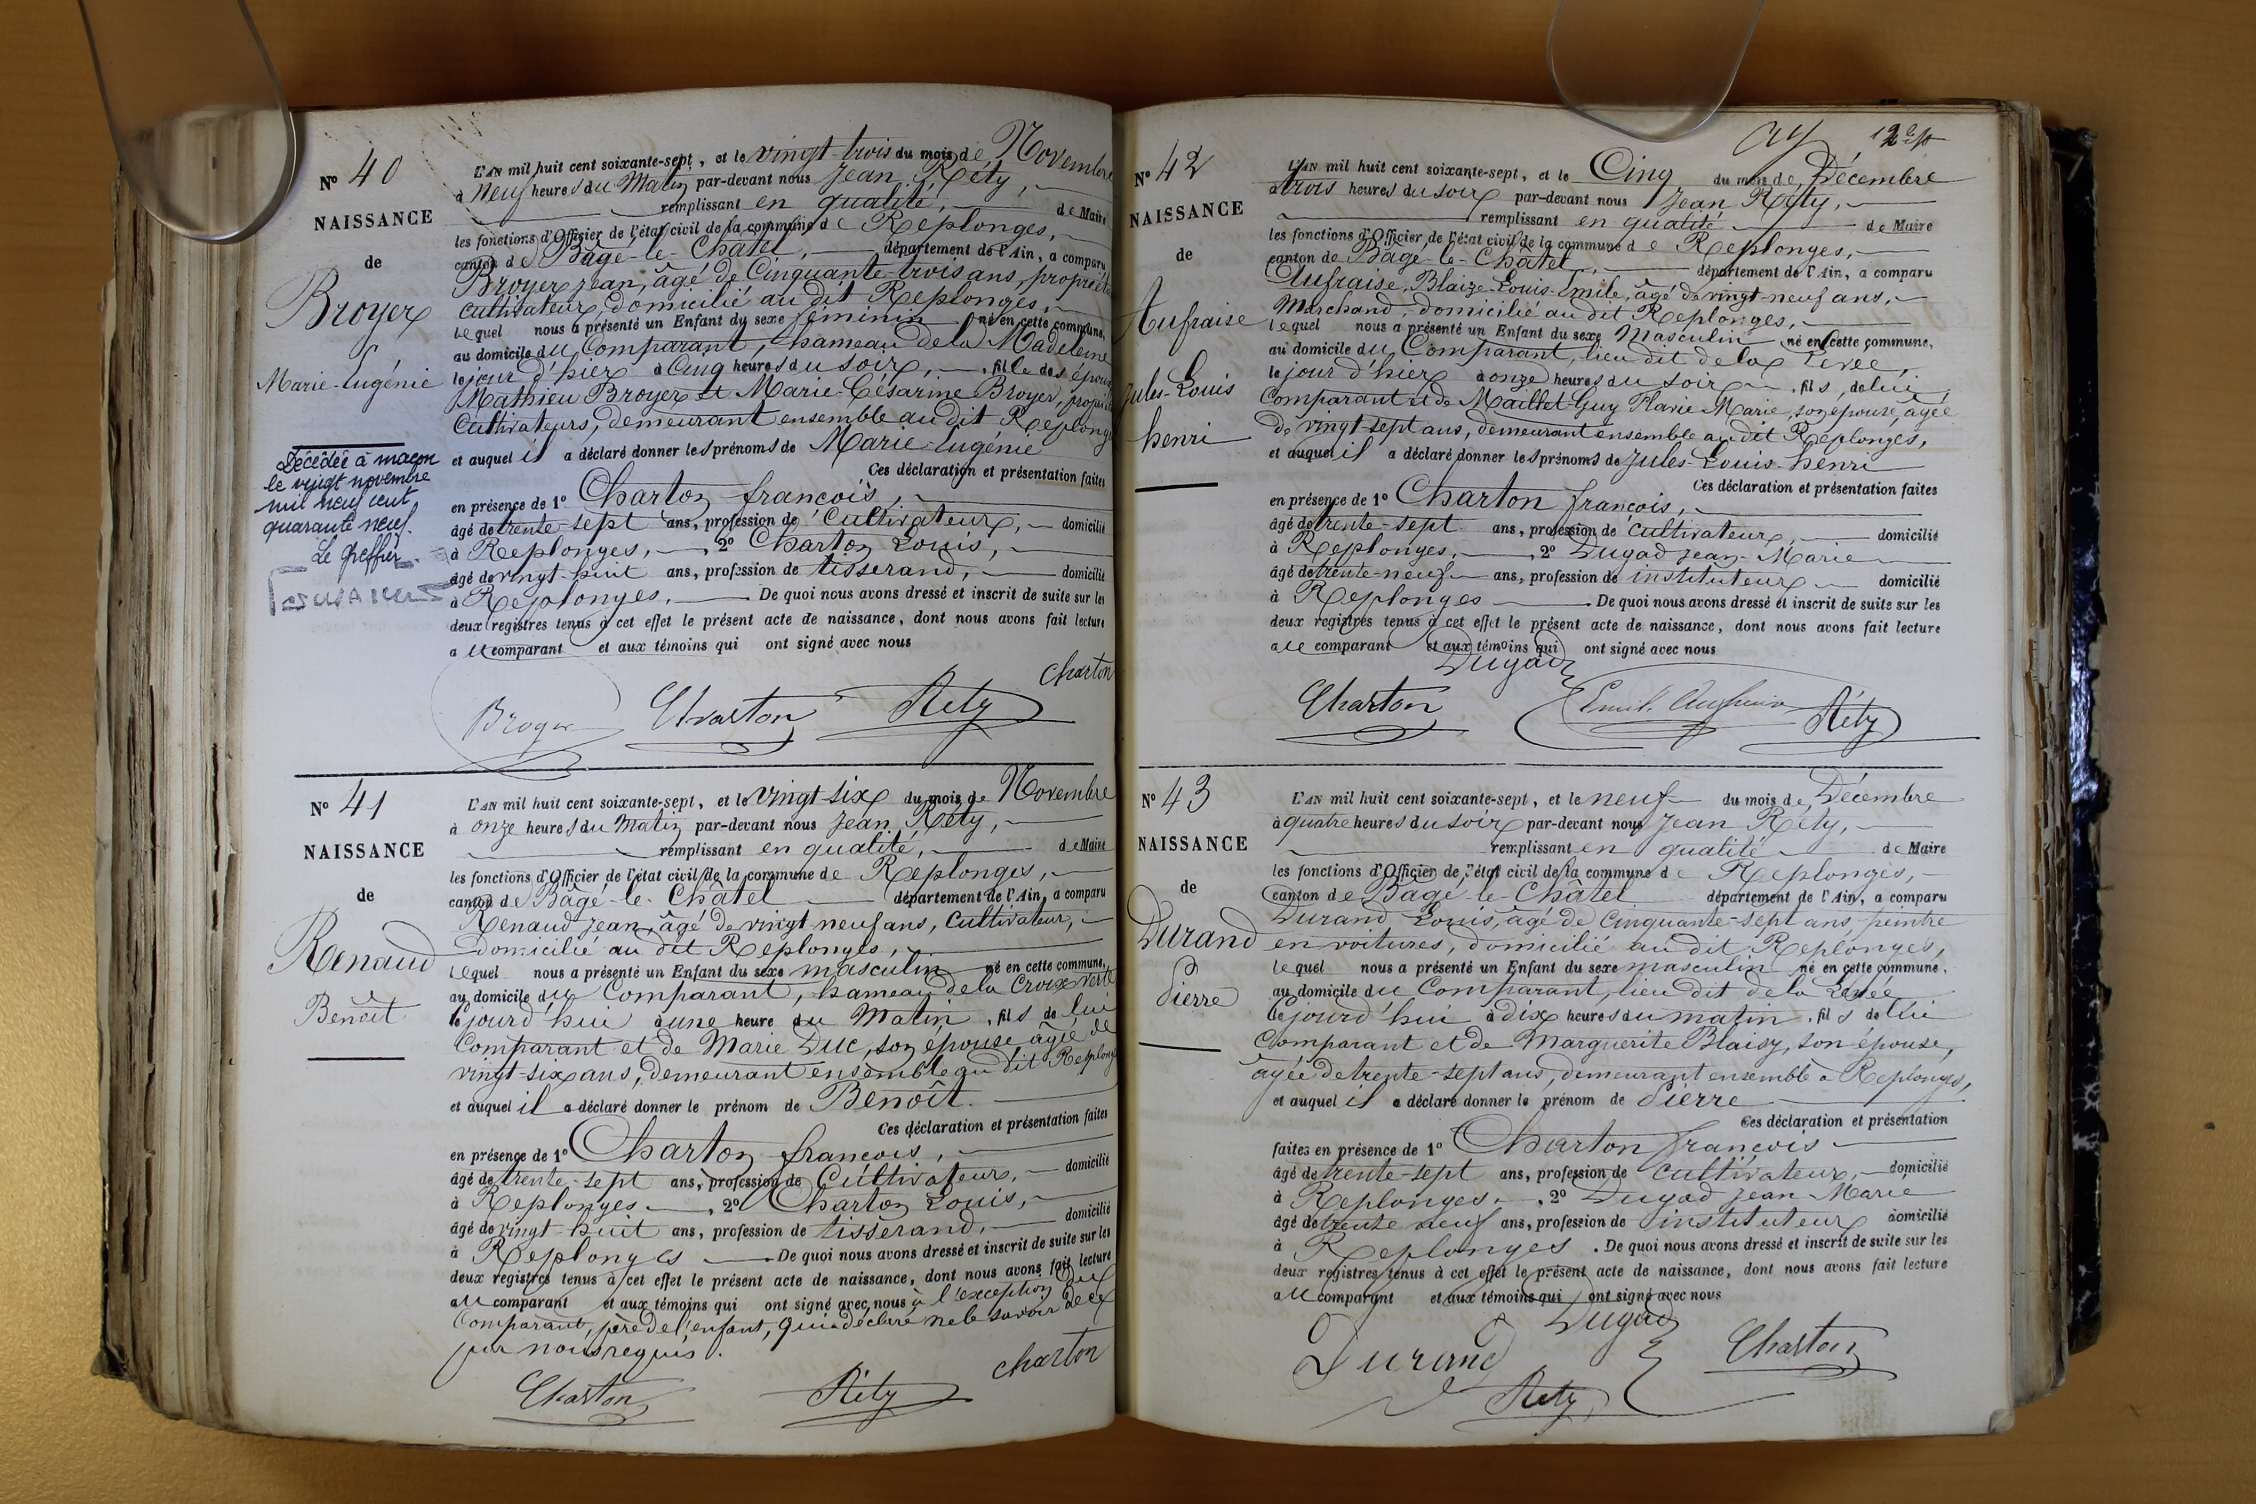 N° 40
NAISSANCE
de
Broyer
Marie-Eugénie
Décédée à macon
le vingt novembre
mil neuf cent
quarante neuf.
Le Greffier
L'AN mil huit cent soixante-sept, et le vingt-trois du mois de Novembre
à neuf heures du Matin par-devant nous Jean Réty,
remplissant en qualité, de Maire
les fonctions d'Officier de l'état civil de la commune de Replonges,
canton de Bâgé-le-Châtel, département de l'Ain, a comparu
Broyer Jean, âgé de Cinquante-trois ans, propriéte
cultivateur, domicilié au dit Replonges,
lequel nous a présenté un Enfant du sexe féminin né en cette commune,
au domicile du Comparant, hameau de la Madeleine
le jour d'hier à Cinq heures du soir, fille des épous
Mathieu Broyer et Marie-Césarine Broyer, propri
Cultivateurs, demeurant ensemble au dit Replong
et auquel il a déclaré donner les prénoms de Marie-Eugénie
Ces déclaration et présentation faites
en présence de 1° Charton françois,
âgé de trente-sept ans, profession de Cultivateur, domicilié
à Replonges, 2° Charton Louis,
âgé de vingt-huit ans, profession de tisserand, domicilié
à Replonges, De quoi nous avons dressé et inscrit de suite sur les
deux registres tenus à cet effet le présent acte de naissance, dont nous avons fait lecture
au comparant et aux témoins qui ont signé avec nous
Charton
Broyer Charton Réty
N° 41
NAISSANCE
de
Renaud
Benoît
L'AN mil huit cent soixante-sept, et le vingt-six du mois de Novembre
à onze heures du Matin par-devant nous Jean Réty,
remplissant en qualité, de Maire
les fonctions d'Officier de l'état civil de la commune de Replonges,
canton de Bâgé-le-Châtel département de l'Ain, a comparu
Renaud Jean, âgé de vingt neuf ans, Cultivateur,
domicilié au dit Replonges,
lequel nous a présenté un Enfant du sexe masculin né en cette commune,
au domicile du Comparant, hameau de la Croix verte
le jourd'hui à une heure du Matin, fils de lui
Comparant et de Marie Duc, son épouse âgée de
vingt-six ans, demeurant ensemble au dit Replong
et auquel il a déclaré donner le prénom de Benoît.
Ces déclaration et présentation faites
en présence de 1° Charton françois,
âgé de trente-sept ans, profession de Cultivateur, domicilié
à Replonges, 2° Charton Louis,
âgé de vingt-huit ans, profession de tisserand, domicilié
à Replonges De quoi nous avons dressé et inscrit de suite sur les
deux registres tenus à cet effet le présent acte de naissance, dont nous avons fait lecture
au comparant et aux témoins qui ont signé avec nous à l'exception du
Comparant, père de l'enfant, qui a déclaré ne le savoir de ce
par nous requis.
Charton Réty charton
N° 42
NAISSANCE
de
Aufraise
Jules-Louis
henri
L'AN mil huit cent soixante-sept, et le Cinq du mois de Décembre
à trois heures du soir par-devant nous Jean Réty,
remplissant en qualité de Maire
les fonctions d'Officier de l'état civil de la commune de Replonges,
canton de Bâgé-le-Châtel, département de l'Ain, a comparu
Aufraise, Blaize-Louis-Emile, âgé de vingt-neuf ans,
Marchand, domicilié au dit Replonges,
lequel nous a présenté un Enfant du sexe Masculin né en cette commune,
au domicile du Comparant, lieu dit de la Levée,
le jour d'hier à onze heures du soir, fils, de lui
Comparant et de Maillet-Guy Flavie Marie, son épouse, âgée
de vingt-sept ans, demeurant ensemble au dit Replonges,
et auquel il a déclaré donner les prénoms de Jules-Louis-henri
Ces déclaration et présentation faites
en présence de 1° Charton françois,
âgé de trente-sept ans, profession de cultivateur, domicilié
à Replonges, 2° Dugad Jean-Marie
âgé de trente-neuf ans, profession de instituteur domicilié
à Replonges De quoi nous avons dressé et inscrit de suite sur les
deux registres tenus à cet effet le présent acte de naissance, dont nous avons fait lecture
au comparant et aux témoins qui ont signé avec nous
Dugad
Charton Emile Aufraise Réty
N° 43
NAISSANCE
de
Durand
Pierre
L'AN mil huit cent soixante-sept, et le neuf du mois de Décembre
à quatre heures du soir par-devant nous Jean Réty,
remplissant en qualité de Maire
les fonctions d'Officier de l'état civil de la commune de Replonges,
canton de Bâgé-le-Châtel département de l'Ain, a comparu
Durand Louis, âgé de Cinquante-sept ans, peintre
en voitures, domicilié au dit Replonges,
lequel nous a présenté un Enfant du sexe masculin né en cette commune,
au domicile du Comparant, lieu dit de la Levée
le jourd'hui à dix heures du matin, fils de lui
Comparant et de Marguerite Blaisy, son épouse,
âgée de trente-sept ans, demeurant ensemble à Replonges,
et auquel il a déclaré donner le prénom de Pierre
Ces déclaration et présentation
faites en présence de 1° Charton françois
âgé de trente-sept ans, profession de Cultivateur, domicilié
à Replonges, 2° Dugad Jean Marie
âgé de trente neuf ans, profession de instituteur domicilié
à Replonges. De quoi nous avons dressé et inscrit de suite sur les
deux registres tenus à cet effet le présent acte de naissance, dont nous avons fait lecture
au comparant et aux témoins qui ont signé avec nous
Dugad
Durand Charton
Réty